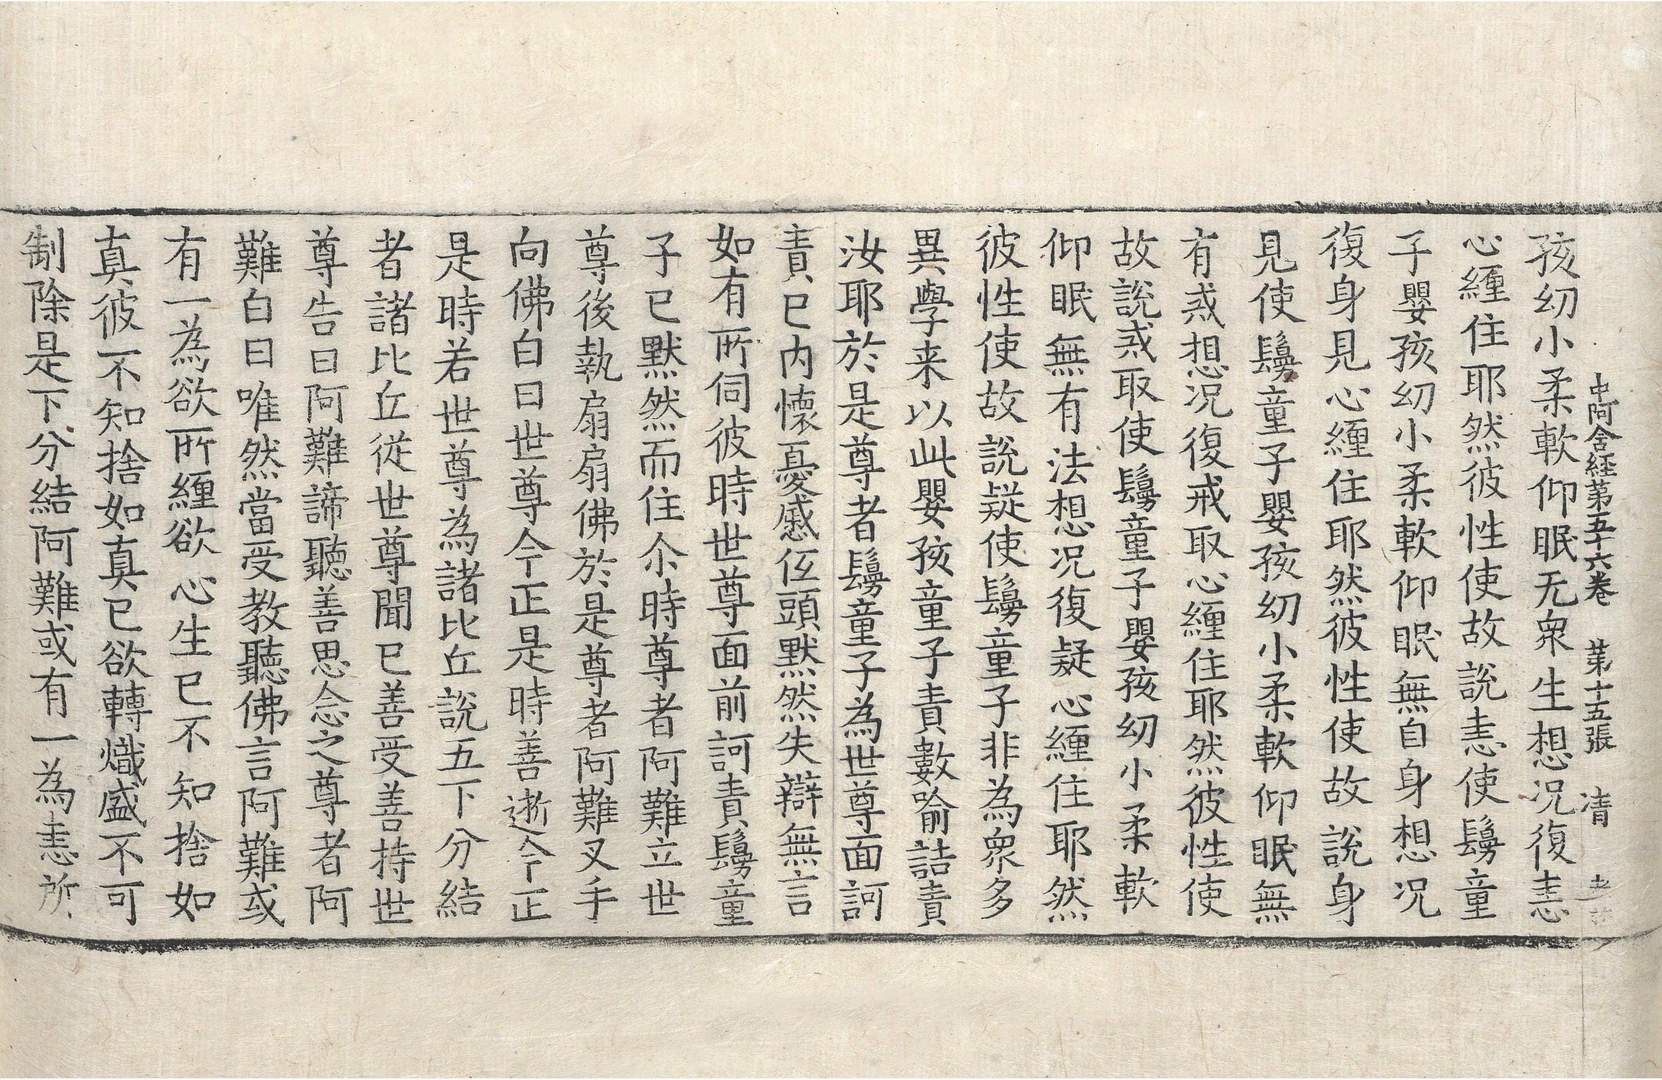 中阿含経第五十六卷　第十五張　清
孩幼小柔軟仰眠无衆生想况復恚
心纏住耶然彼性使故說恚使鬘童
子嬰孩幼小柔軟仰眠無自身想况
復身見心纏住耶然彼性使故說身
見使鬘童子嬰孩幼小柔軟仰眠無
有惑想况復戒取心纏住耶然彼性使
故說惑取使鬘童子嬰孩幼小柔軟
仰眠無有法想况復疑心纏住耶然
彼性使故說疑使鬘童子非為衆多
異學来以此嬰孩童子責數喻詰責
汝耶於是尊者鬘童子為世尊面訶
責已内懷憂慼伍頭默然失辯無言
如有所伺彼時世尊面前訶責鬘童
子已默然而住尒時尊者阿難立世
尊後執扇扇佛於是尊者阿難叉手
向佛白曰世尊今正是時善逝今正
是時若世尊為諸比丘說五下分結
者諸比丘從世尊聞已善受善持世
尊告曰阿難諦聽善思念之尊者阿
難白曰唯然當受教聽佛言阿難或
有一為欲所纏欲心生已不知捨如
真彼不知捨如真已欲轉熾盛不可
制除是下分結阿難或有一為恚所